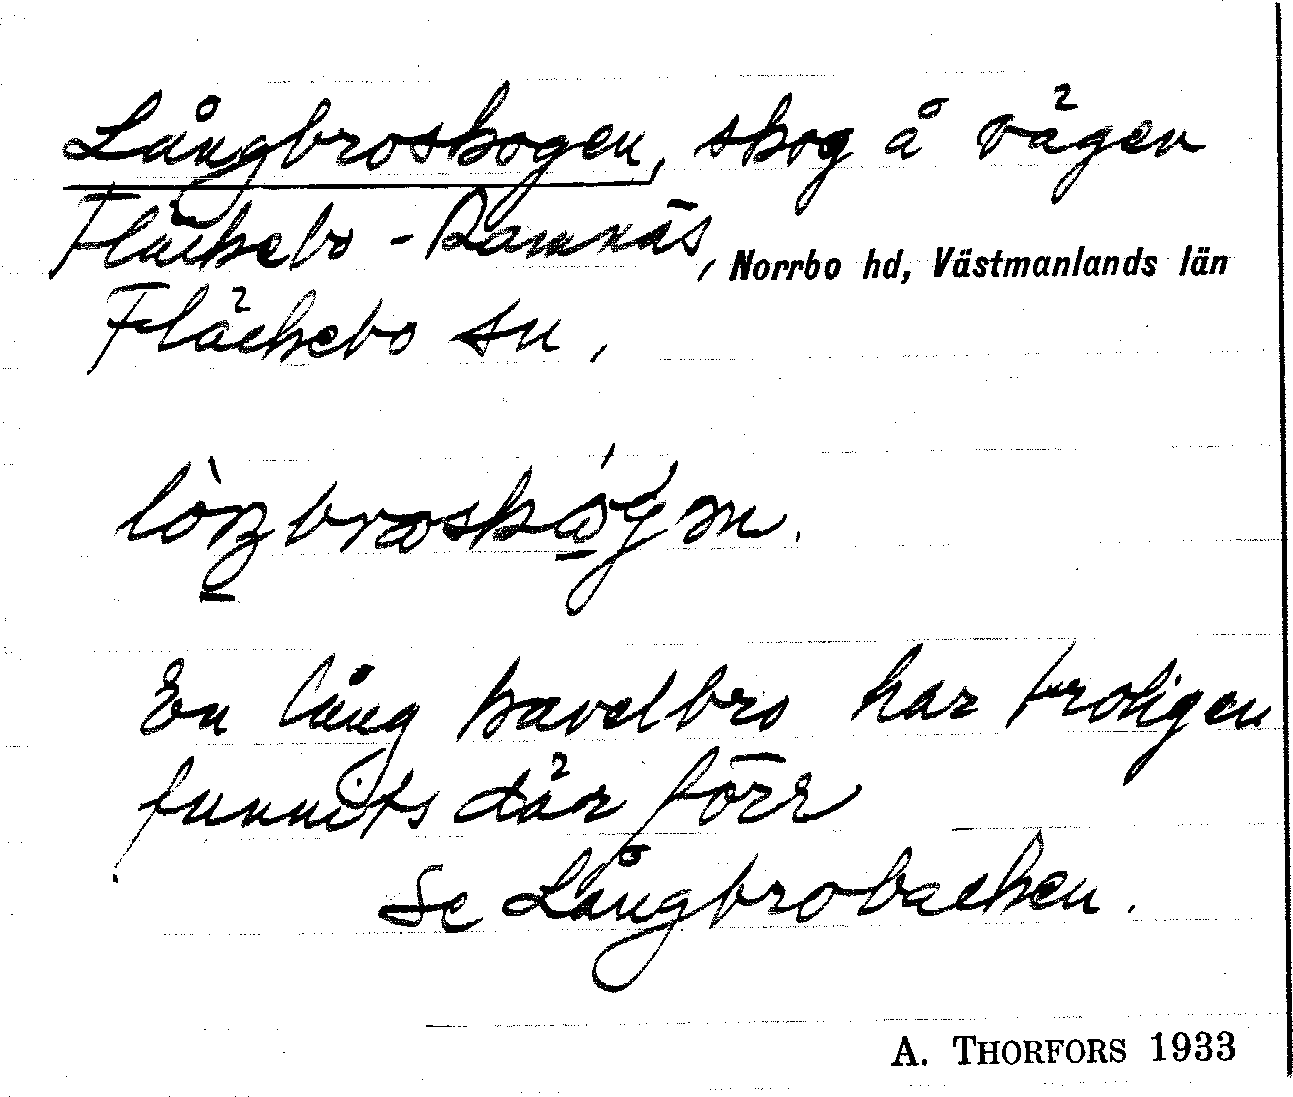 Långbroskogen, skog å vägen
Fläckebo - Ramnäs, Norrbo hd, Västmanlands län
Fläckebo sn.
En lång kavelbro har troligen
funnits där förr
Se Långbrobacken.
A. THORFORS 1933